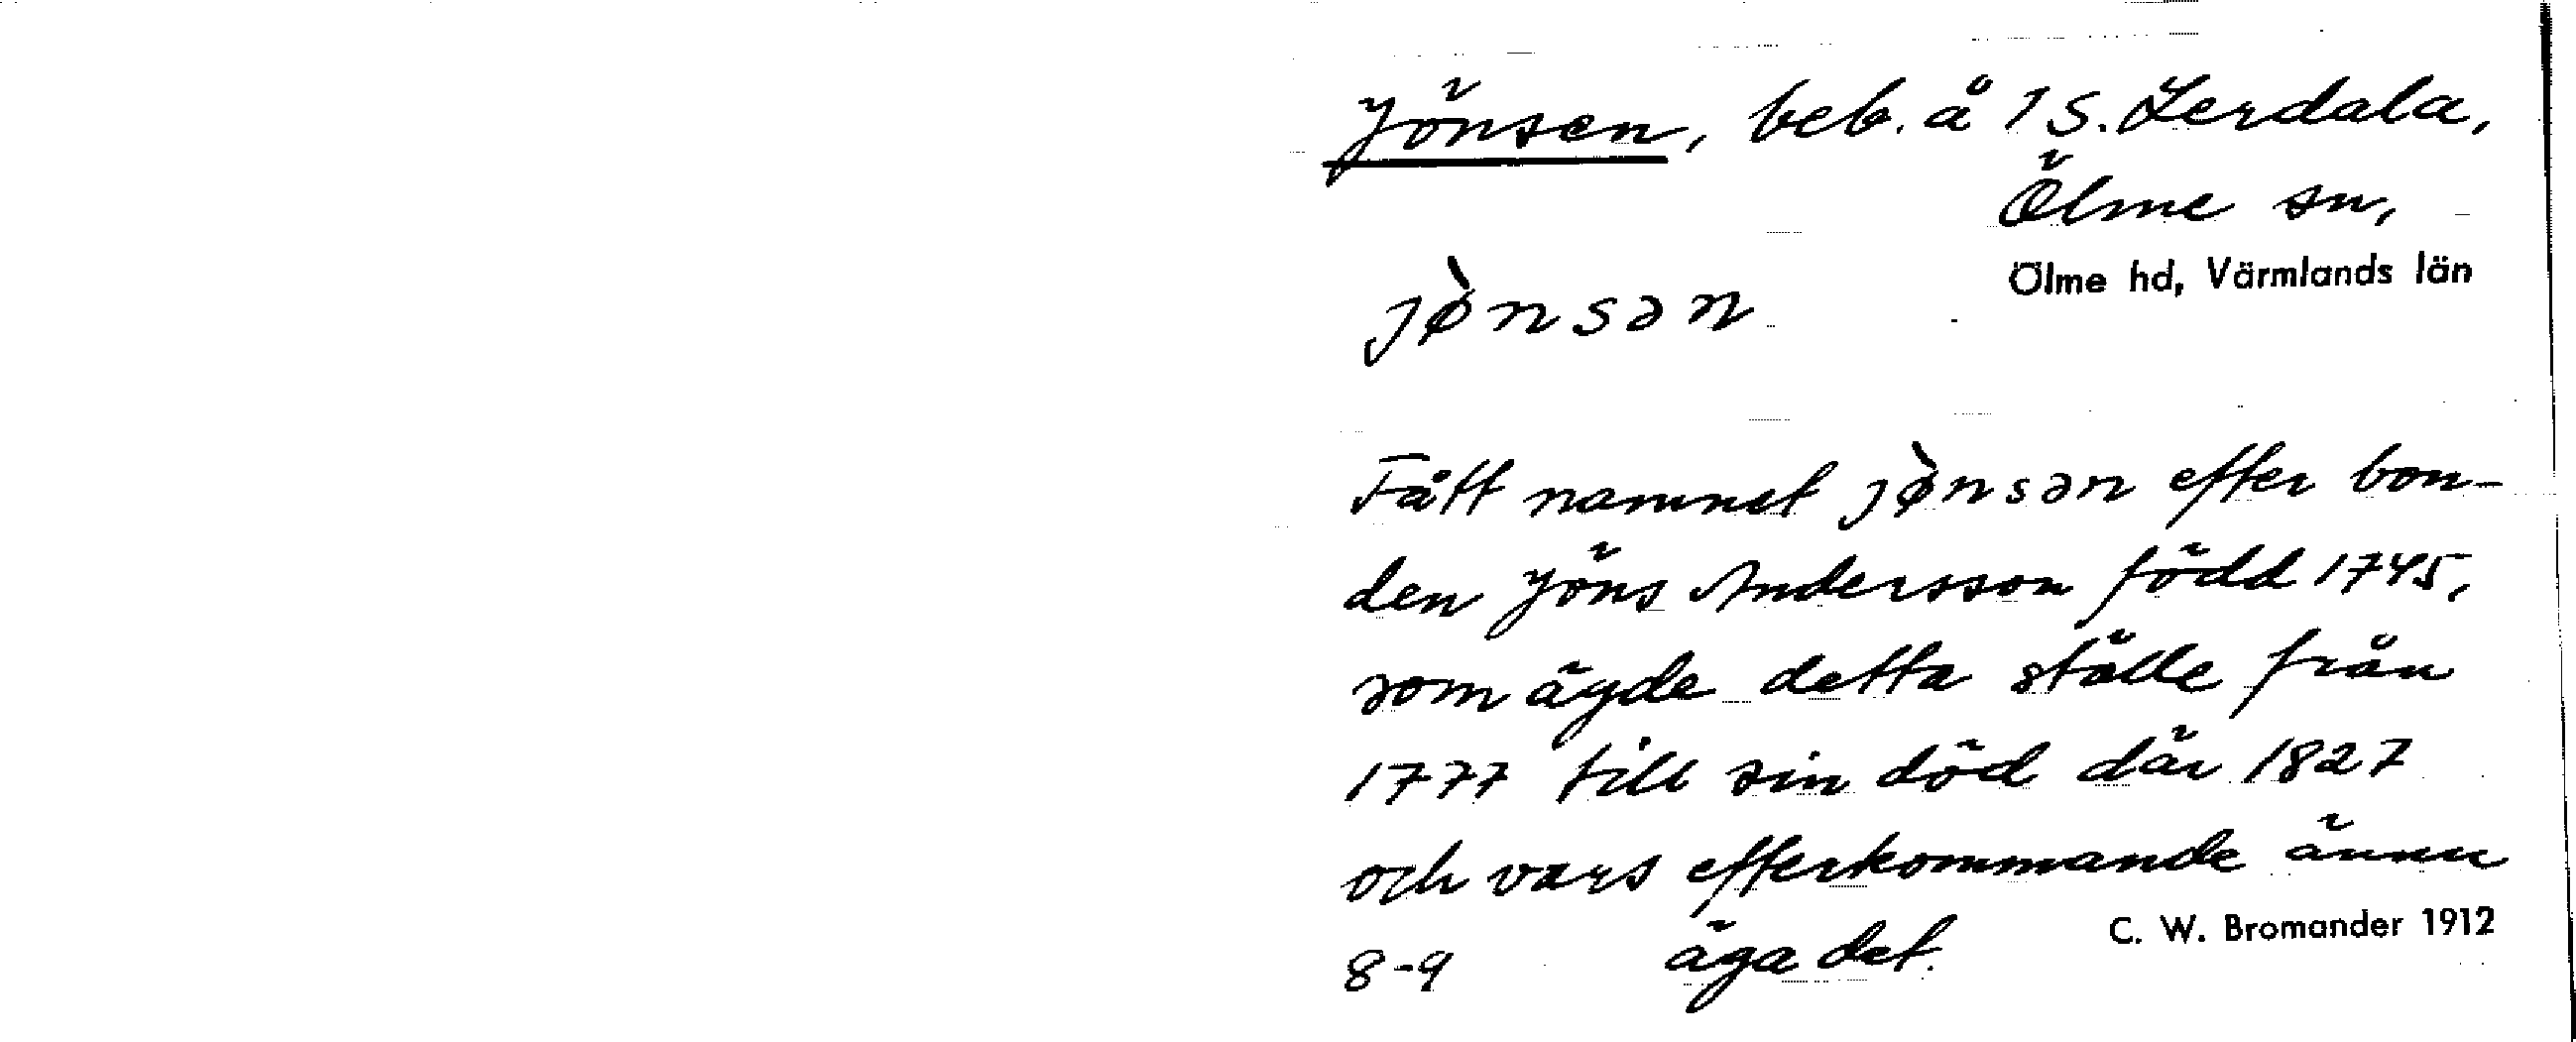 Jönsen, beb. å 1 S. Lerdala,
Ölme sn,
Ölme hd, Värmlands län
jø̀nsən
Fått namnet jø̀nsən efter bon-
den Jöns Andersson född 1745,
som ägde detta ställe från
1777 till sin död där 1827
och vars efterkommande ännu
äga det.
C. W. Bromander 1912
8-9